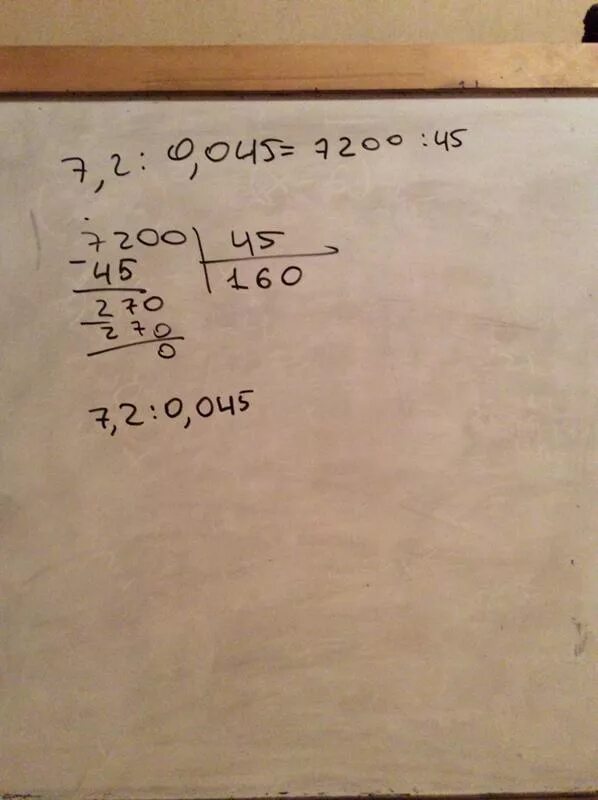 7,2 : 0,045 = 7200 : 45
7200 | 45
- 45 | 160
270
- 270
0
7,2 : 0,045